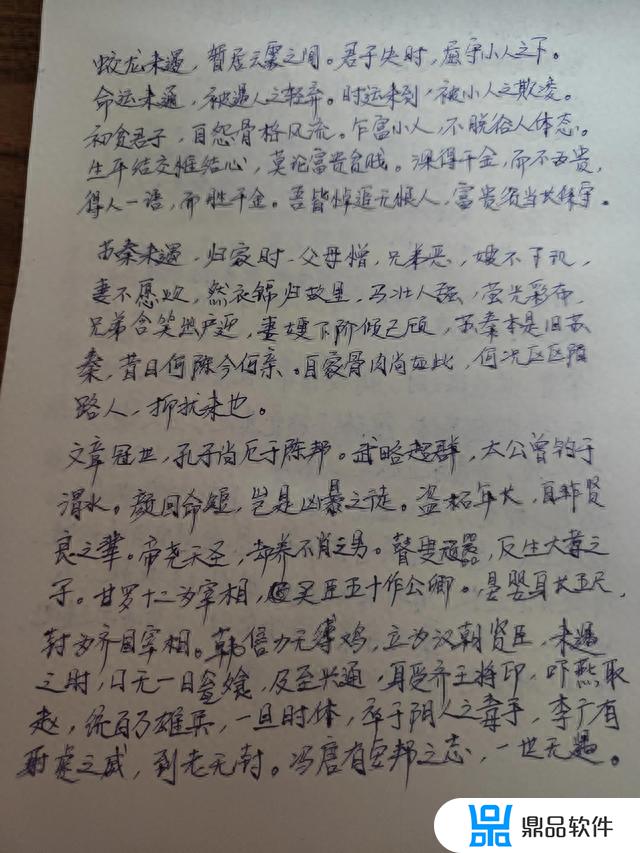 蛟龙未遇，暂居云雾之间。君子失时，屈守小人之下。
命运未通，被愚人之轻弃。时运未到，被小人之欺凌。
初贫君子，自怨骨格风流。乍富小人，不脱俗人体态。
生平结交惟结心，莫论富贵贫贱。深得千金，而不为贵，
得人一语，而胜千金。吾皆悼追无恨人，富贵须当长保守。
苏秦未遇，归家时，父母憎，兄弟恶，嫂不下机，
妻不愿炊，然衣锦归故里，马壮人强，萤光彩布，
兄弟含笑出户迎，妻嫂下阶倾己顾，苏秦本是旧苏
秦，昔日何陈今何亲。自家骨肉尚如此，何况区区陌
路人，抑扬来也。
文章冠世，孔子尚厄于陈邦。武略超群，太公曾钓于
渭水。颜回命短，岂是凶暴之徒。盗拓年长，自非贤
良之辈。帝尧天圣，却养不肖之男。瞽叟顽嚣，反生大孝之
子。甘罗十二为宰相，买臣五十作公卿。晏婴身长五尺，
封为齐国宰相。韩信力无缚鸡，立为汉朝贤臣，未遇
之时，口无一日餐飧，及至兴通，身受齐王将印，吓燕取
赵，统百万雄兵，一旦时休，卒于阴人之毒手，李广有
射虎之威，到老无封。冯唐有安邦之志，一世无遇。
鼎品软件